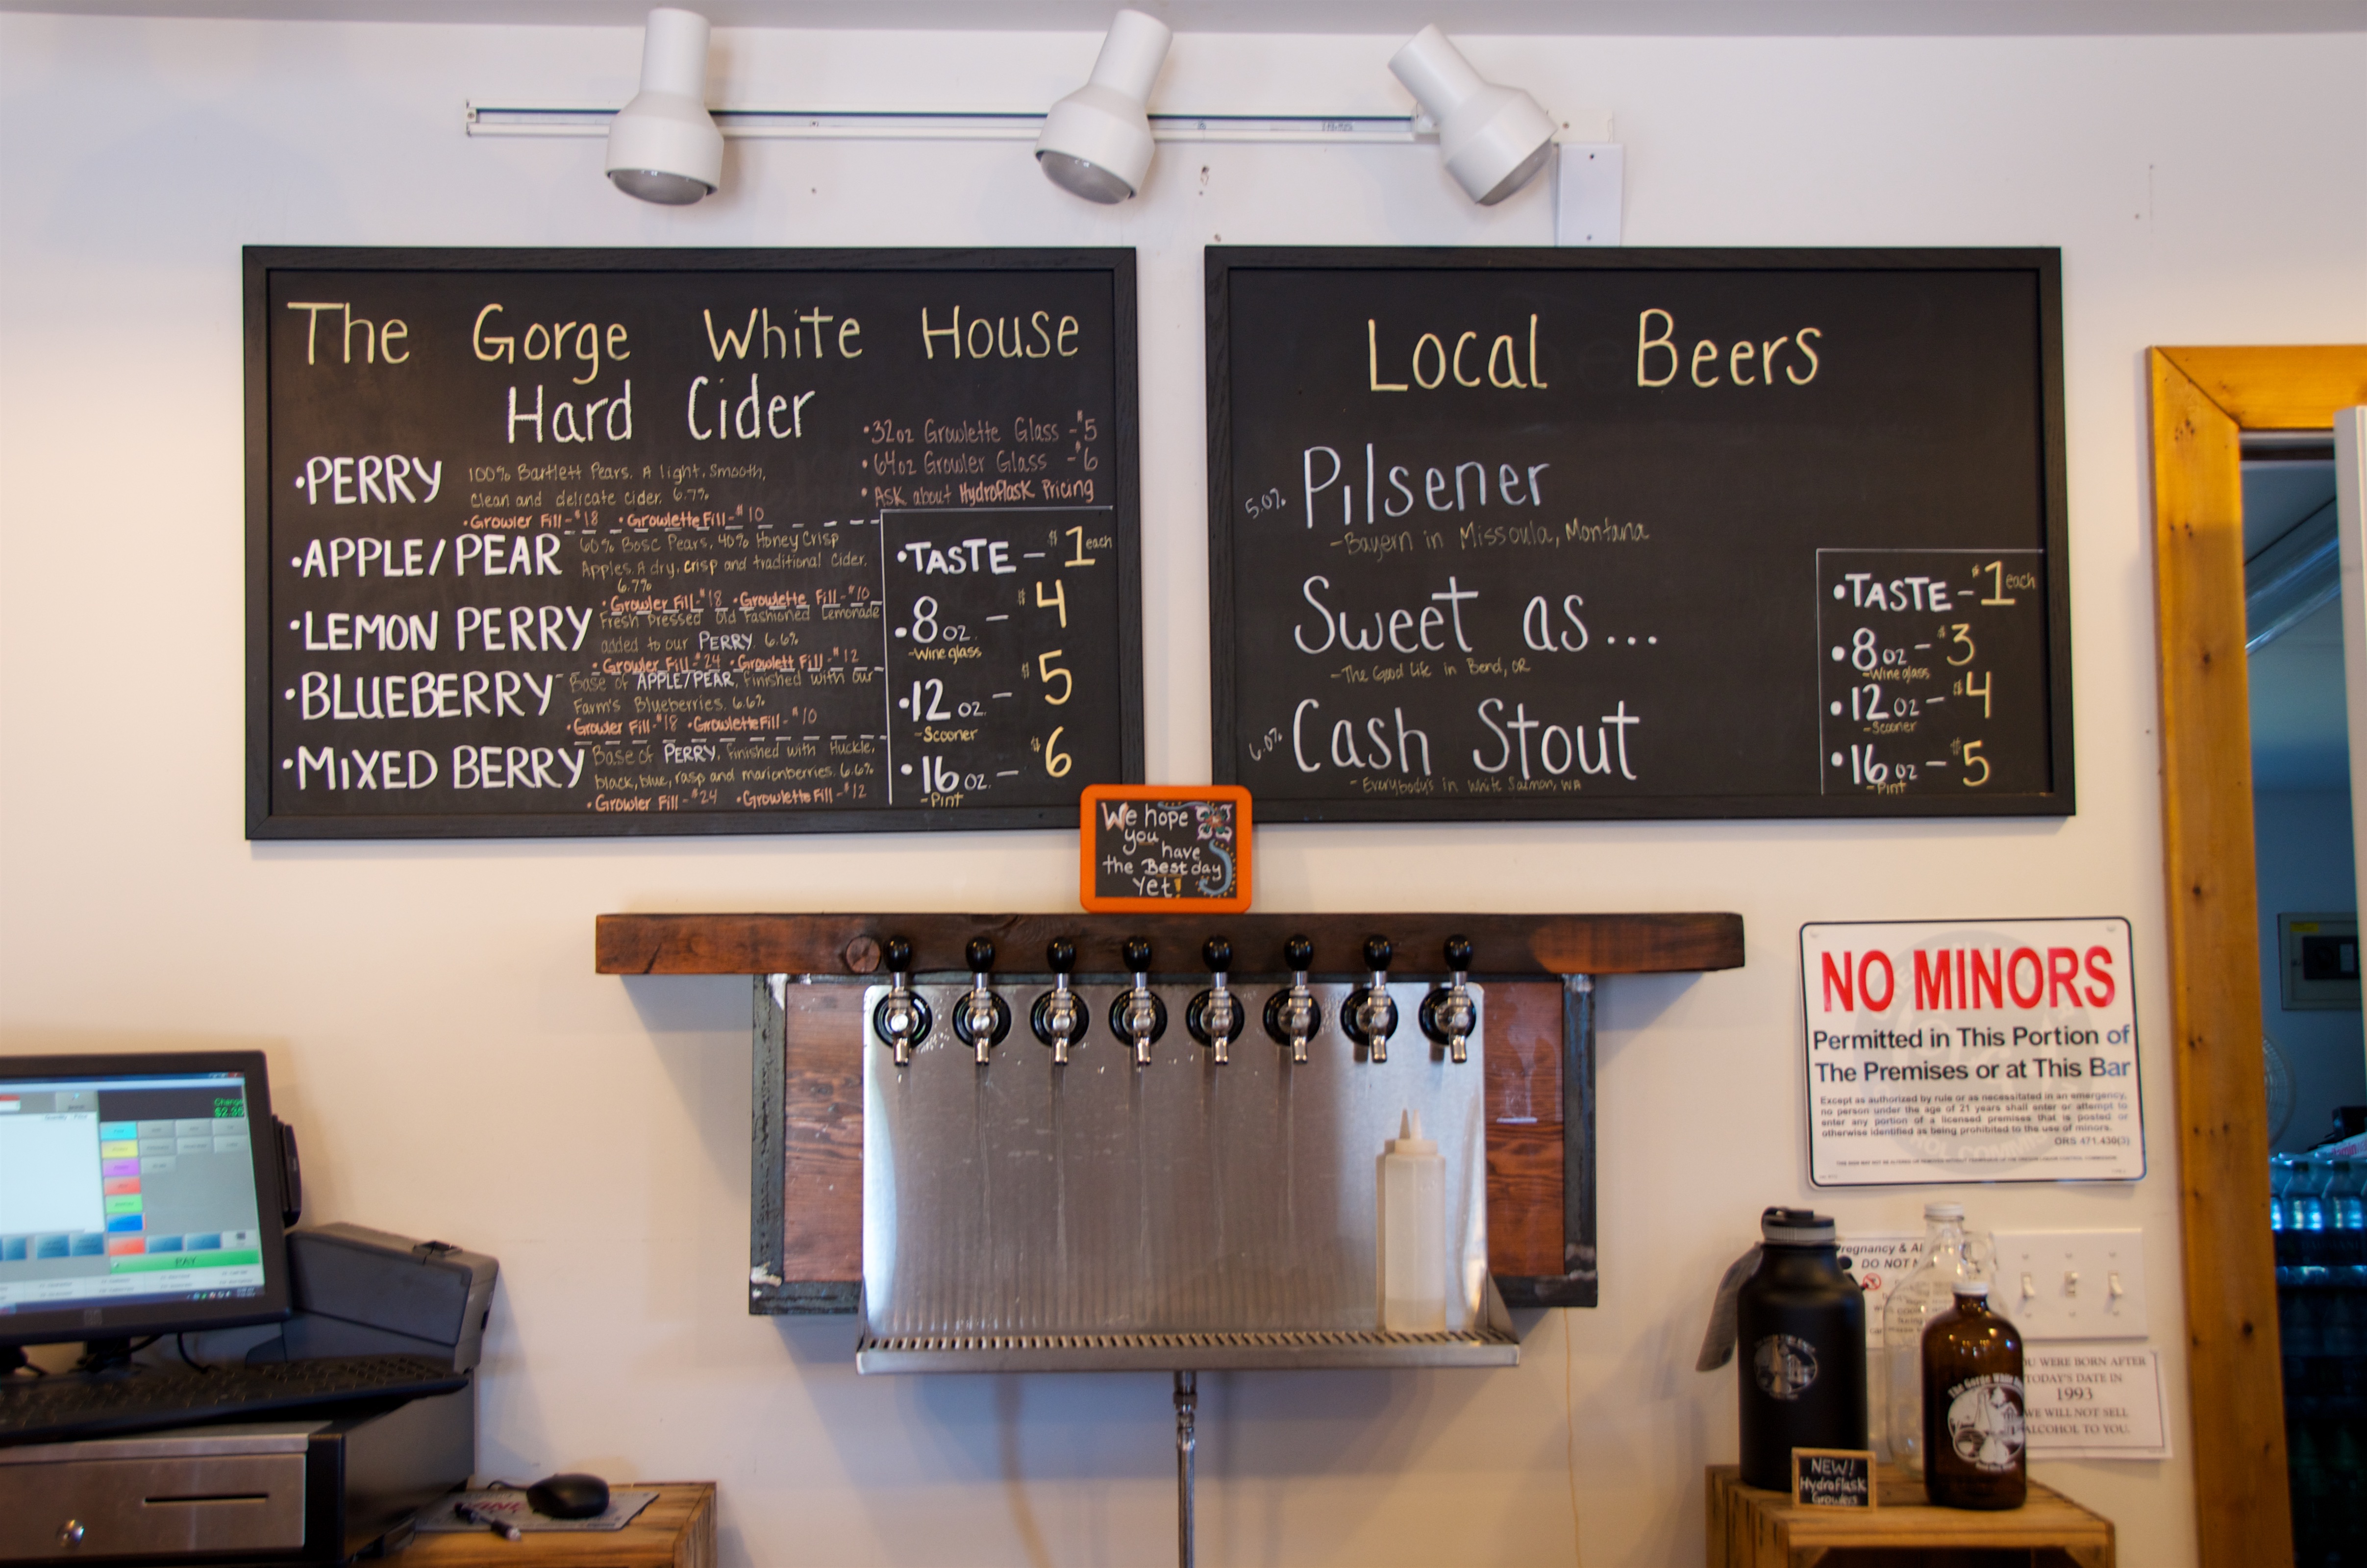 The Gorge White House
Hard Cider
•32oz Growlette Glass - $5
•64oz Growler Glass - $6
•Ask about Hydroflask Pricing
•PERRY
100% Bartlett Pears. A light, smooth,
clean and delicate cider. 6.7%
•Growler Fill - $18 •Growlette Fill - $10
•APPLE/PEAR
60% Bosc Pears, 40% Honey Crisp
Apples. A dry, crisp and traditional cider.
6.7%
•Growler Fill - $18 •Growlette Fill - $10
•LEMON PERRY
Fresh Pressed Old Fashioned Lemonade
added to our PERRY. 6.6%
•Growler Fill - $24 •Growlett Fill - $12
•BLUEBERRY
Base of APPLE/PEAR, finished with our
Farm's Blueberries. 6.6%
•Growler Fill - $18 •Growlette Fill - $10
•MIXED BERRY
Base of PERRY, finished with Huckle,
black, blue, rasp and marionberries. 6.6%
•Growler Fill - $24 •Growlette Fill - $12
•TASTE - $1 each
•8 oz. - $4
-Wine glass
•12 oz. - $5
-Scooner
•16 oz. - $6
-Pint
Local Beers
5.0% Pilsener
-Bayern in Missoula, Montana
Sweet as...
-The Good Life in Bend, OR
6.0% Cash Stout
-Everybody's in White Salmon, WA
•TASTE - $1 each
•8 oz - $3
-Wine glass
•12 oz - $4
-Scooner
•16 oz - $5
-Pint
We hope
you
have
the Best day
yet!
NO MINORS
Permitted in This Portion of
The Premises or at This Bar
Except as authorized by rule or as necessitated in an emergency,
no person under the age of 21 years shall enter or attempt to
enter any portion of a licensed premises that is posted or
otherwise identified as being prohibited to the use of minors.
ORS 471.430(3)
Change
$2.35
PAY
Pregnancy & Al
DO NOT
OU WERE BORN AFTER
TODAY'S DATE IN
1993
WE WILL NOT SELL
ALCOHOL TO YOU.
The Gorge White
NEW!
Hydroflask
Growlers